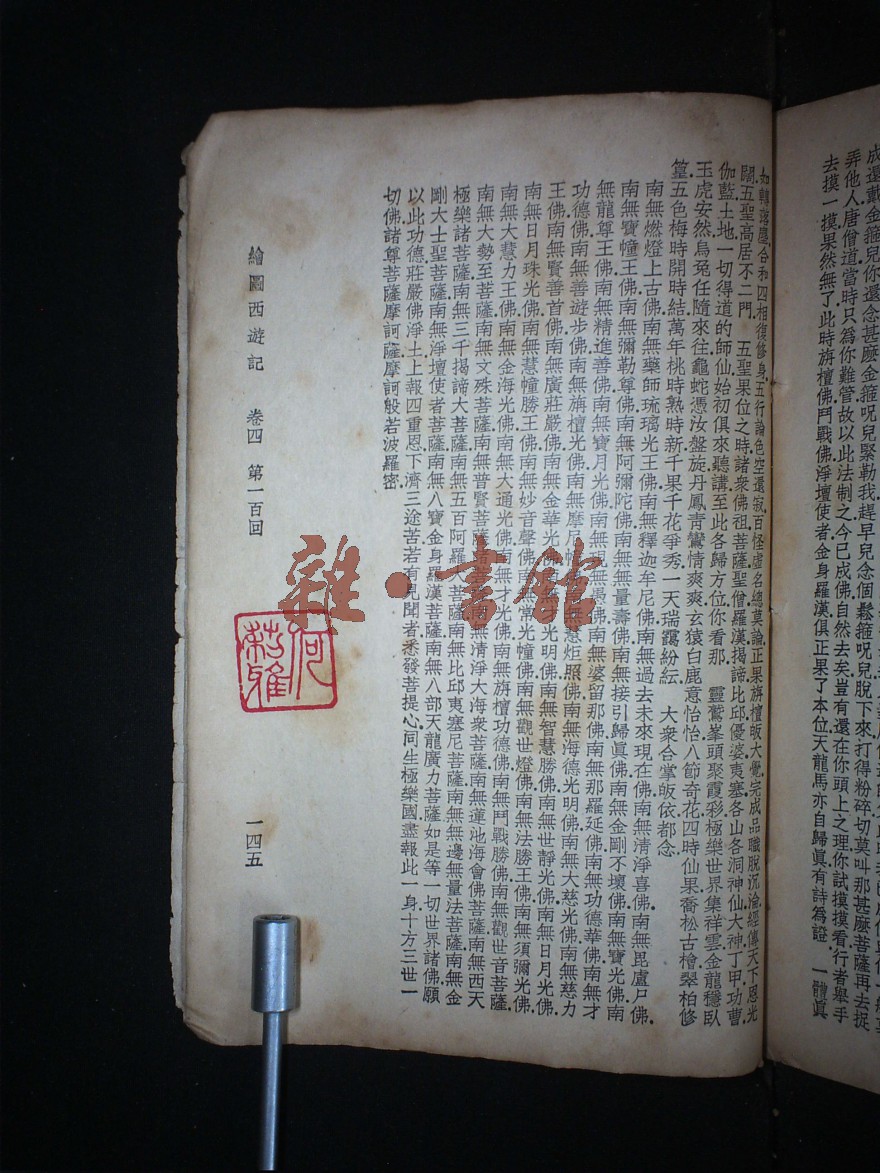 成還戴金箍兒你還念甚麽金箍呪兒緊勒我趕早兒念個鬆箍呪兒脫下來打得粉碎切莫叫那甚麽菩薩再去捉
弄他人唐僧道當時只爲你難管故以此法制之今已成佛自然去矣豈有還在你頭上之理你試摸摸看行者舉手
去摸一摸果然無了此時旃檀佛鬥戰佛淨壇使者金身羅漢俱正果了本位天龍馬亦自歸眞有詩爲證 一體眞
如轉落塵合和四相復修身五行論色空還寂百怪虛名總莫論正果旃檀皈大覺完成品職脫沉淪經傳天下恩光
闊五聖高居不二門 五聖果位之時諸衆佛祖菩薩聖僧羅漢揭諦比邱優婆夷塞各山各洞神仙大神丁甲功曹
伽藍土地一切得道的師仙始初俱來聽講至此各歸方位你看那 靈鷲峯頭聚霞彩極樂世界集祥雲金龍穩臥
玉虎安然烏兔任隨來往龜蛇憑汝盤旋丹鳳靑鸞情爽爽玄猿白鹿意怡怡八節奇花四時仙果喬松古檜翠柏修
篁五色梅時開時結萬年桃時熟時新千果千花爭秀一天瑞靄紛紜 大衆合掌皈依都念
南無燃燈上古佛南無藥師琉璃光王佛南無釋迦牟尼佛南無過去未來現在佛南無清淨喜佛南無毘盧尸佛
南無寶幢王佛南無彌勒尊佛南無阿彌陀佛南無無量壽佛南無接引歸眞佛南無金剛不壞佛南無寶光佛南
無龍尊王佛南無精進善佛南無寶月光佛南無現無愚佛南無婆留那佛南無那羅延佛南無功德華佛南無才
功德佛南無善遊步佛南無旃檀光佛南無摩尼幢佛南無慧炬照佛南無海德光明佛南無大慈光佛南無慈力
王佛南無賢善首佛南無廣莊嚴佛南無金華光佛南無才光明佛南無智慧勝佛南無世靜光佛南無日月光佛
南無日月珠光佛南無慧幢勝王佛南無妙音聲佛南無常光幢佛南無觀世燈佛南無法勝王佛南無須彌光佛
南無大慧力王佛南無金海光佛南無大通光佛南無才光佛南無旃檀功德佛南無鬥戰勝佛南無觀世音菩薩
南無大勢至菩薩南無文殊菩薩南無普賢菩薩南無清淨大海衆菩薩南無蓮池海會佛菩薩南無西天
極樂諸菩薩南無三千揭諦大菩薩南無五百阿羅大菩薩南無比邱夷塞尼菩薩南無無邊無量法菩薩南無金
剛大士聖菩薩南無淨壇使者菩薩南無八寶金身羅漢菩薩南無八部天龍廣力菩薩如是等一切世界諸佛願
以此功德莊嚴佛淨土上報四重恩下濟三途苦若有見聞者悉發菩提心同生極樂國盡報此一身十方三世一
切佛諸尊菩薩摩訶薩摩訶般若波羅密
繪圖西遊記 卷四 第一百回 一四五
雜·書館